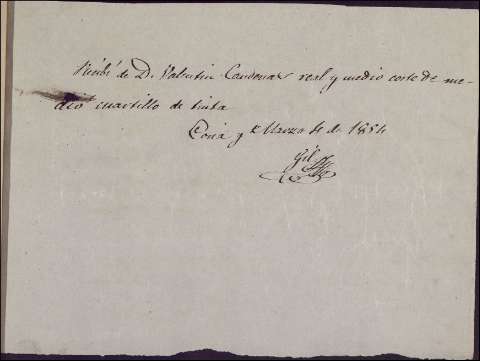 Recibí de D. Valentin Candenas real y medio coste de me-
dio cuartillo de tinta
Coria y Marzo de 1854
Gil